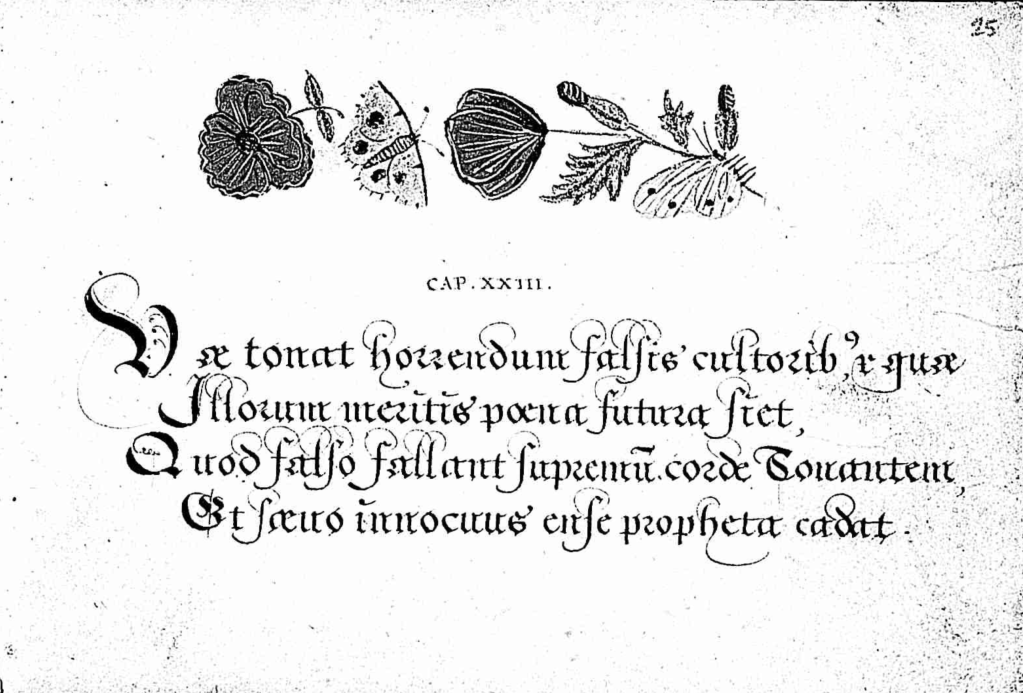 25
CAP. XXIII.
Væ tonat horrendum falsis cultorib⁹, & quæ
Illorum meritis pœna futura siet,
Quod falso fallant supremū corde Tonantem,
Et sæuo innocuus ense propheta cadat.